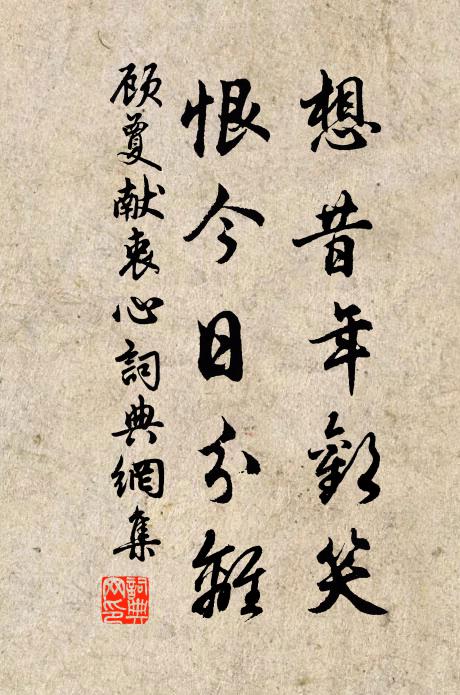 想昔年歡笑
恨今日分離
顾敻献衷心詞典網集
詞典網印